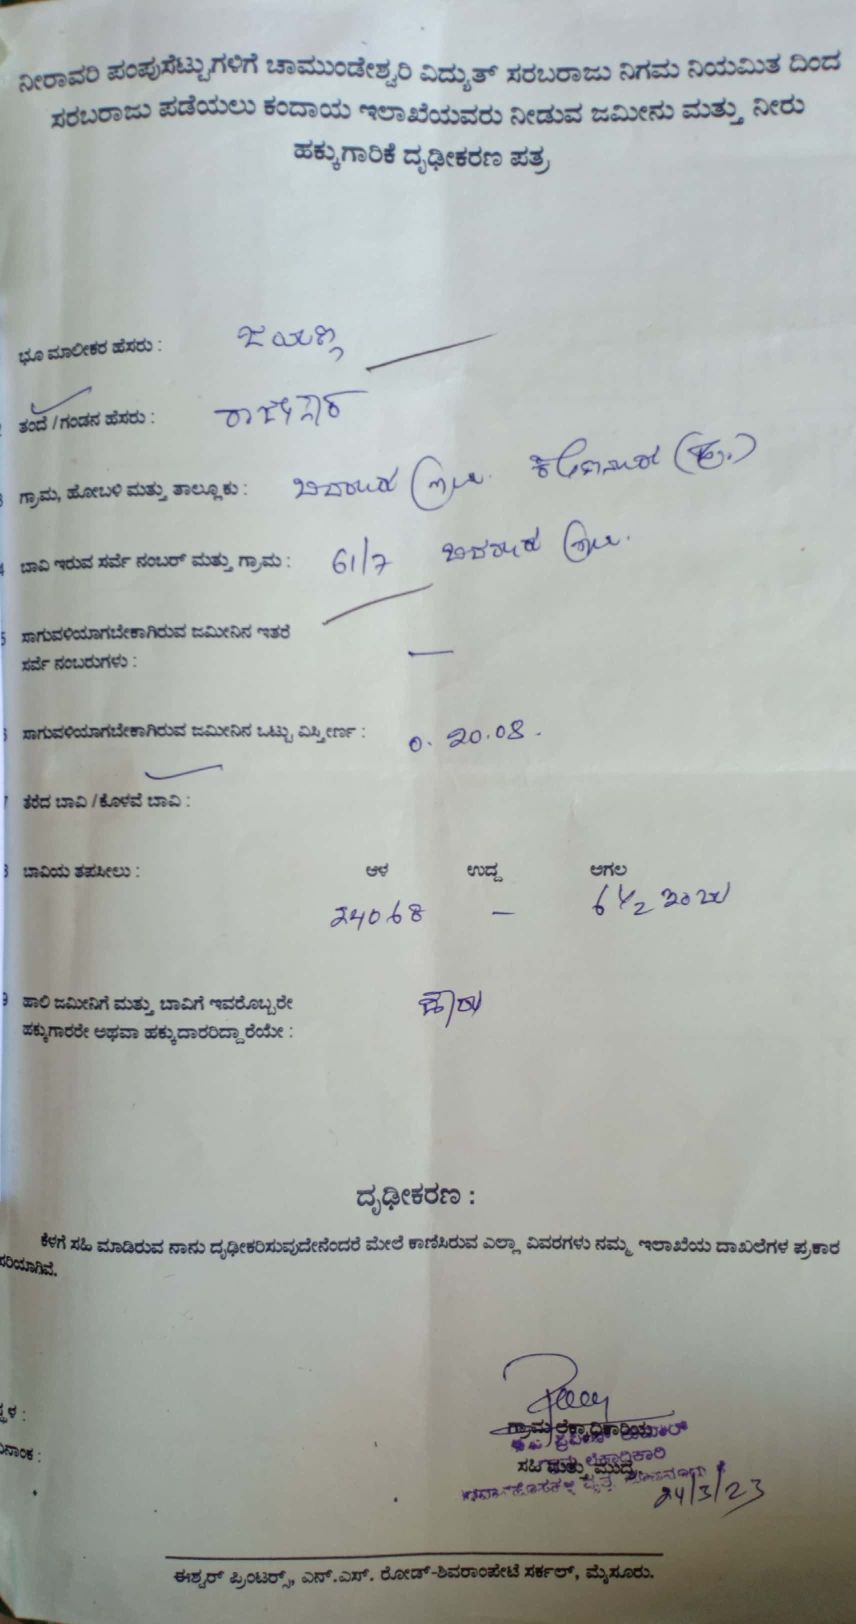 ನೀರಾವರಿ ಪಂಪುಸೆಟ್ಟುಗಳಿಗೆ ಚಾಮುಂಡೇಶ್ವರಿ ವಿದ್ಯುತ್ ಸರಬರಾಜು ನಿಗಮ ನಿಯಮಿತ ದಿಂದ
ಸರಬರಾಜು ಪಡೆಯಲು ಕಂದಾಯ ಇಲಾಖೆಯವರು ನೀಡುವ ಜಮೀನು ಮತ್ತು ನೀರು
ಹಕ್ಕುಗಾರಿಕೆ ದೃಢೀಕರಣ ಪತ್ರ
ಭೂ ಮಾಲೀಕರ ಹೆಸರು : ಜಯಣ್ಣ
ತಂದೆ / ಗಂಡನ ಹೆಸರು :
ಗ್ರಾಮ, ಹೋಬಳಿ ಮತ್ತು ತಾಲ್ಲೂಕು :
4 ಬಾವಿ ಇರುವ ಸರ್ವೆ ನಂಬರ್ ಮತ್ತು ಗ್ರಾಮ : 61/7
5 ಸಾಗುವಳಿಯಾಗಬೇಕಾಗಿರುವ ಜಮೀನಿನ ಇತರೆ
ಸರ್ವೆ ನಂಬರುಗಳು : —
ಸಾಗುವಳಿಯಾಗಬೇಕಾಗಿರುವ ಜಮೀನಿನ ಒಟ್ಟು ವಿಸ್ತೀರ್ಣ : 0. 20.08.
7 ತೆರೆದ ಬಾವಿ / ಕೊಳವೆ ಬಾವಿ :
8 ಬಾವಿಯ ತಪಸೀಲು : ಆಳ ಉದ್ದ ಅಗಲ
— 6 1/2
9 ಹಾಲಿ ಜಮೀನಿಗೆ ಮತ್ತು ಬಾವಿಗೆ ಇವರೊಬ್ಬರೇ
ಹಕ್ಕುಗಾರರೇ ಅಥವಾ ಹಕ್ಕುದಾರರಿದ್ದಾರೆಯೇ : ಹೌದು
ದೃಢೀಕರಣ :
ಕೆಳಗೆ ಸಹಿ ಮಾಡಿರುವ ನಾನು ದೃಢೀಕರಿಸುವುದೇನೆಂದರೆ ಮೇಲೆ ಕಾಣಿಸಿರುವ ಎಲ್ಲಾ ವಿವರಗಳು ನಮ್ಮ ಇಲಾಖೆಯ ದಾಖಲೆಗಳ ಪ್ರಕಾರ
ಸರಿಯಾಗಿವೆ.
ಗ್ರಾಮ ಲೆಕ್ಕಾಧಿಕಾರಿಯ
ಸಹಿ ಮತ್ತು ಮುದ್ರೆ
24/3/23
ಈಶ್ವರ್ ಪ್ರಿಂಟರ್ಸ್, ಎನ್.ಎಸ್. ರೋಡ್-ಶಿವರಾಂಪೇಟೆ ಸರ್ಕಲ್, ಮೈಸೂರು.